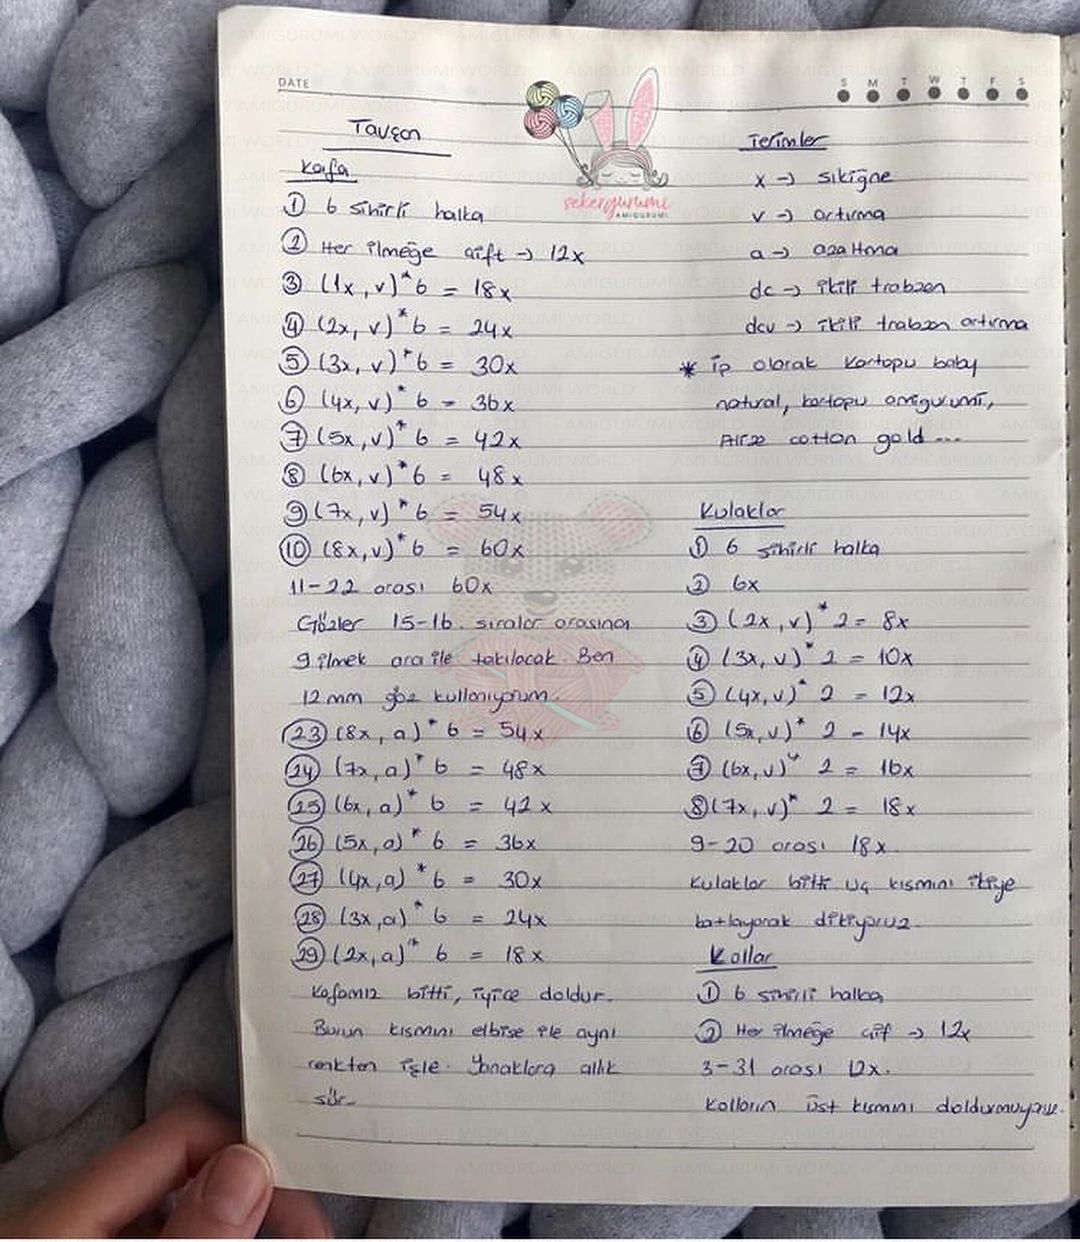 DATE
S M T W T F S
şekergurumi
AMIGURUMI
Tavşan
Kafa
① 6 sihirli halka
② Her ilmeğe çift → 12x
③ (1x, v)*6 = 18x
④ (2x, v)*6 = 24x
⑤ (3x, v)*6 = 30x
⑥ (4x, v)*6 = 36x
⑦ (5x, v)*6 = 42x
⑧ (6x, v)*6 = 48x
⑨ (7x, v)*6 = 54x
⑩ (8x, v)*6 = 60x
11-22 arası 60x
Gözler 15-16. sıralar arasına
9 ilmek ara ile takılacak. Ben
12 mm göz kullanıyorum.
㉓ (8x, a)*6 = 54x
㉔ (7x, a)*6 = 48x
㉕ (6x, a)*6 = 42x
㉖ (5x, a)*6 = 36x
㉗ (4x, a)*6 = 30x
㉘ (3x, a)*6 = 24x
㉙ (2x, a)*6 = 18x
Kafamız bitti, iyice doldur.
Burun kısmını elbise ile aynı
renkten işle. Yanaklara allık
sür.
Terimler
x → sıkiğne
v → artırma
a → azaltma
dc → ikili trabzan
dcv → ikili trabzan artırma
* ip olarak kartopu baby
natural, kartopu amigurumi,
Alize cotton gold ...
Kulaklar
① 6 sihirli halka
② 6x
③ (2x, v)*2 = 8x
④ (3x, v)*2 = 10x
⑤ (4x, v)*2 = 12x
⑥ (5x, v)*2 = 14x
⑦ (6x, v)*2 = 16x
⑧ (7x, v)*2 = 18x
9-20 arası 18x
Kulaklar bitti uç kısmını ikiye
katlayarak dikiyoruz.
Kollar
① 6 sihirli halka
② Her ilmeğe çif → 12x
3-31 arası 12x.
Kolların üst kısmını